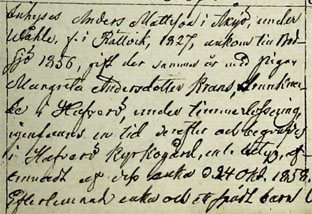 Inhyses Anders Mattsson i Åkjö, under
Wåhle, f. i Rättvik, 1827, ankom till
sjö 1856, gift der samma år med Pigan
Margreta Andersdotter Krans, drunkna-
de i Hafverö, under timmerflossning,
igenfanns en tid derefter och begrovs
i Hafverö Kyrkogård, enl.
af enka d 24 Okt. 1858.
Efterlemnade enka och ett barn